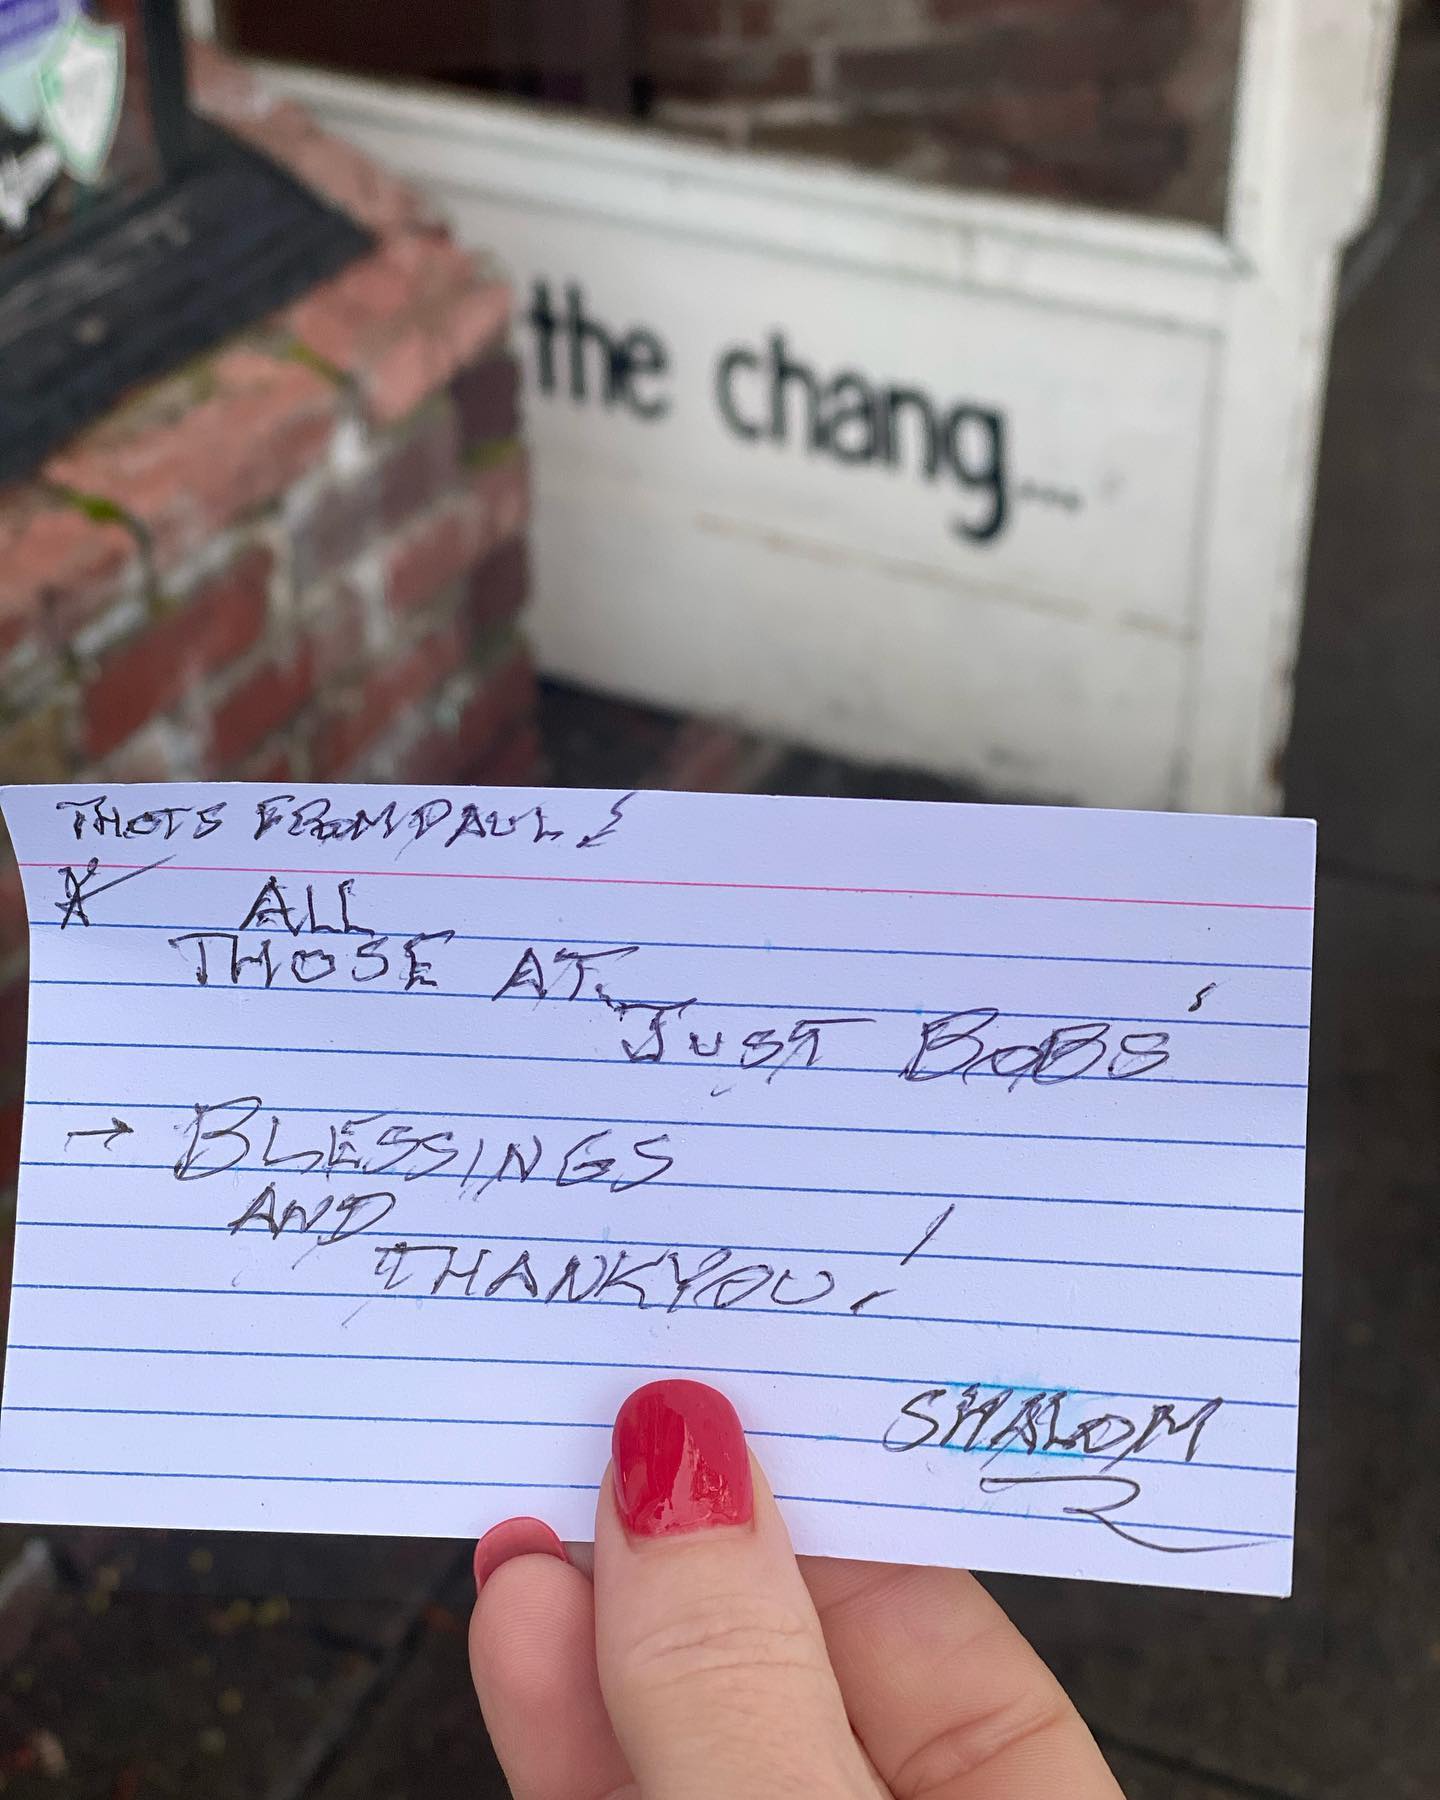 the chang...
THOTS FROM PAUL!
ALL
THOSE AT
JUST BOBS'
→ BLESSINGS
AND
THANKYOU!
SHALOM